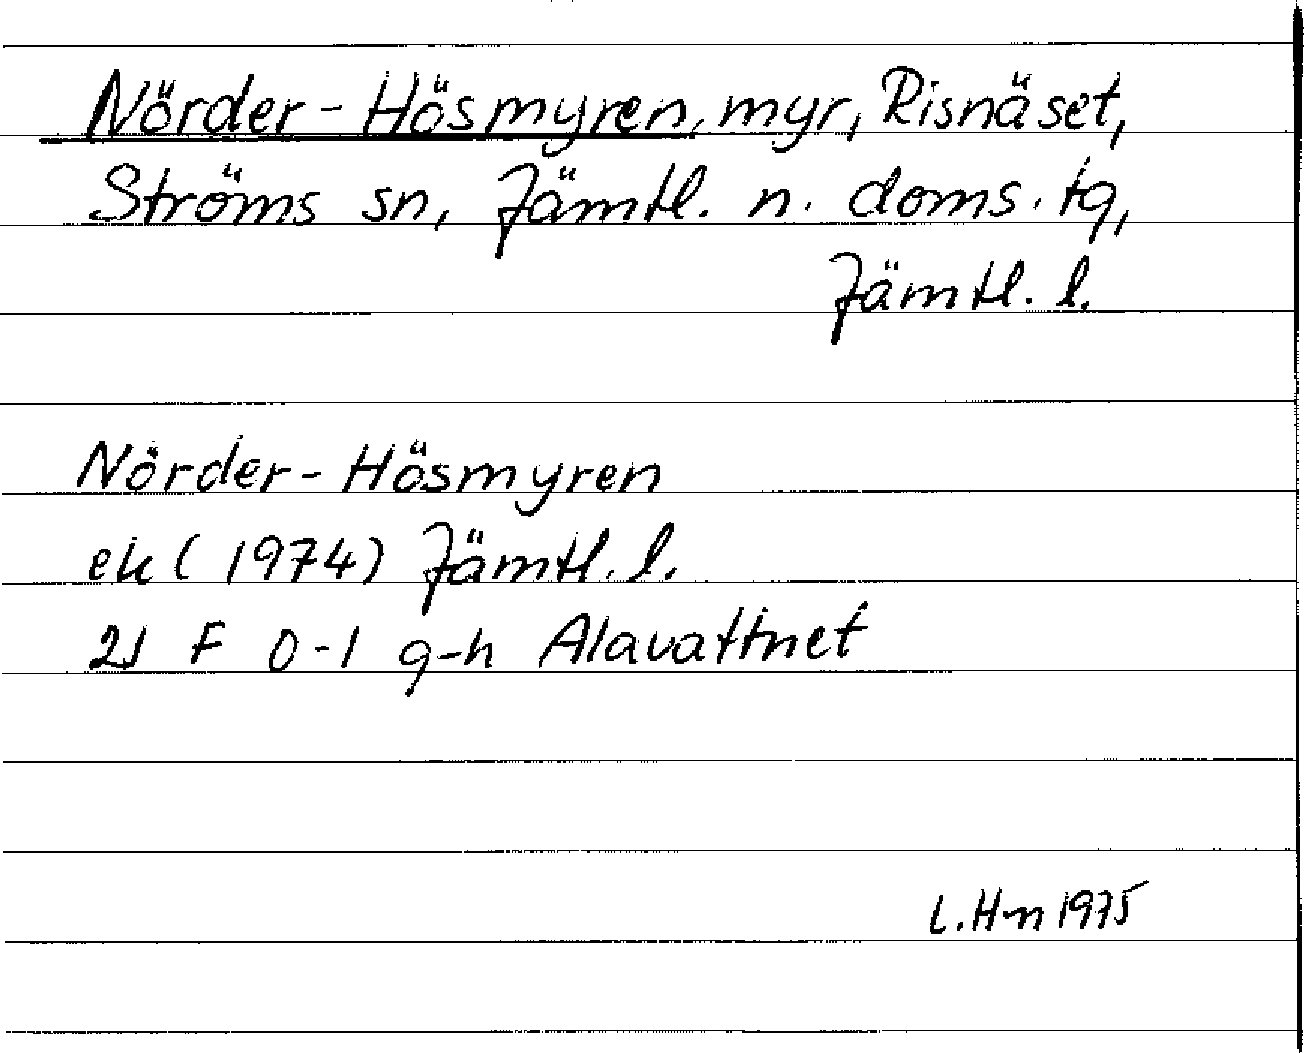 Nörder-Hösmyren, myr, Risnäset,
Ströms sn, Jämtl. n. doms. tg,
Jämtl. l.
Nörder-Hösmyren
ek (1974) Jämtl. l.
21 F 0-1 g-h Alavattnet
L. H-n 1975